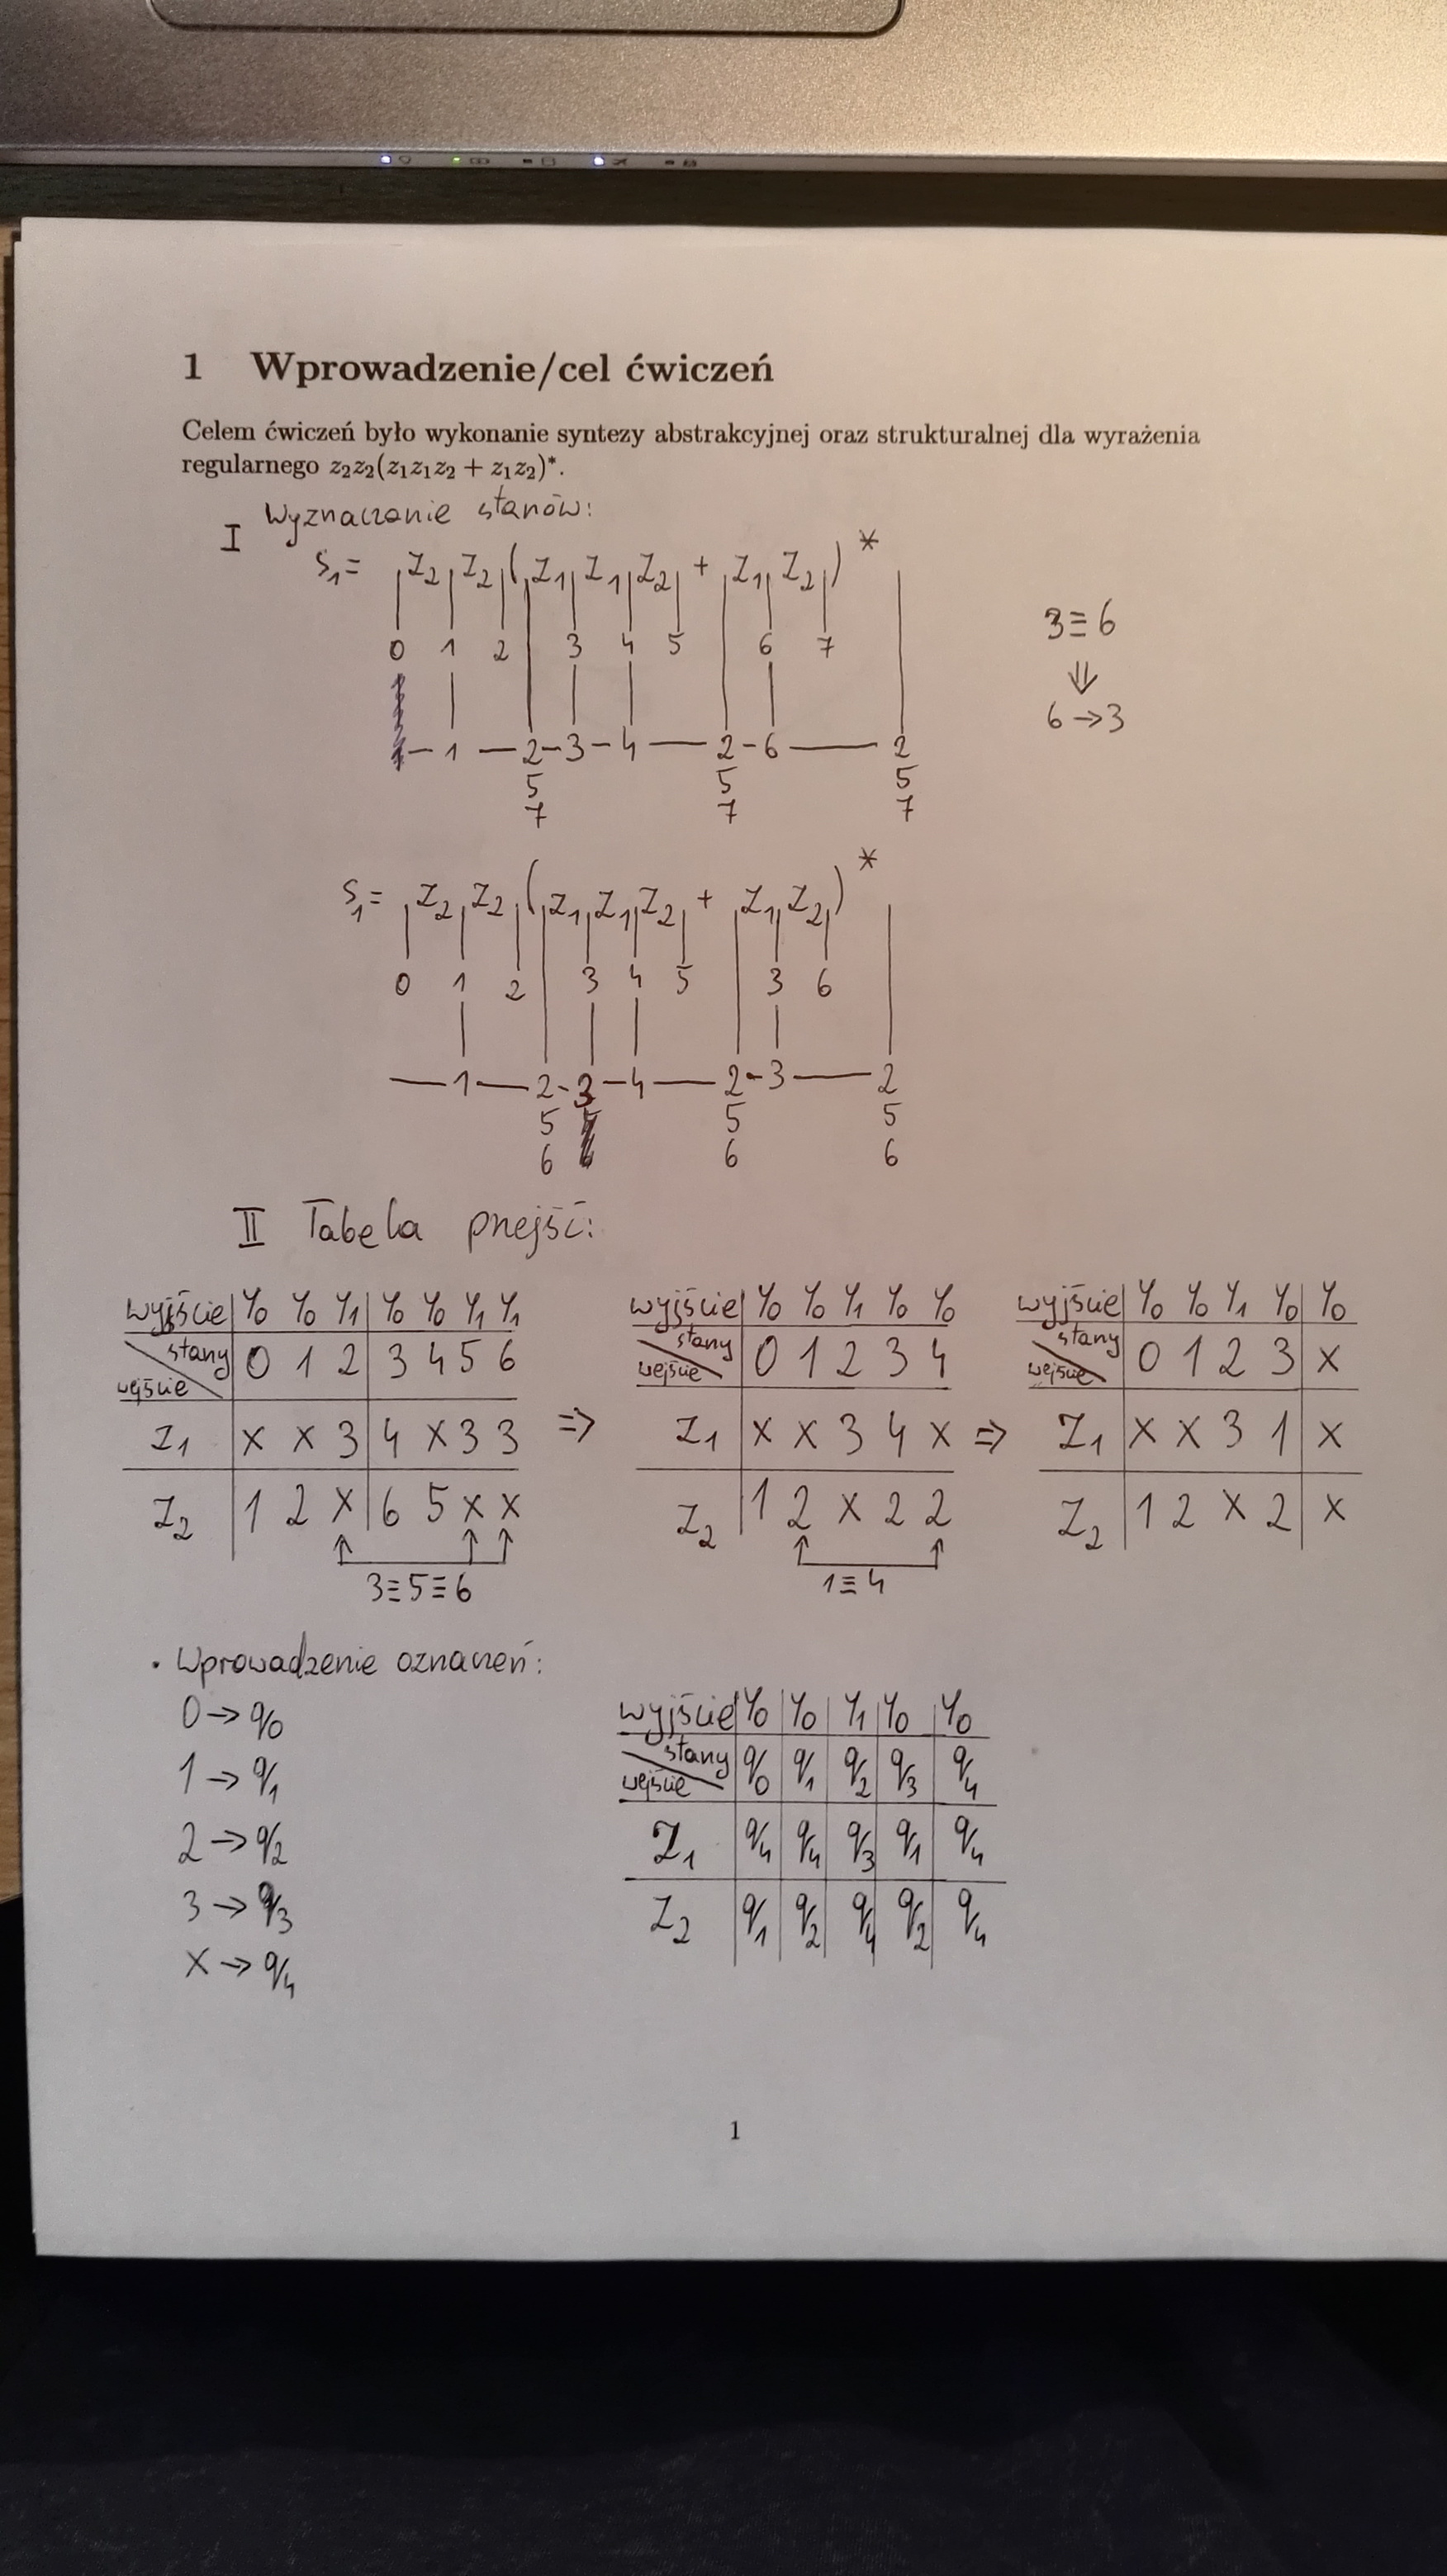 1 Wprowadzenie/cel ćwiczeń
Celem ćwiczeń było wykonanie syntezy abstrakcyjnej oraz strukturalnej dla wyrażenia
regularnego z₂z₂(z₁z₁z₂ + z₁z₂)*.
I Wyznaczanie stanów:
S₁= |Z₂|Z₂|(|Z₁|Z₁|Z₂| + |Z₁|Z₂|)* |
0 1 2 3 4 5 6 7
— 1 — 2 - 3 - 4 — 2 - 6 — 2
5 5 5
7 7 7
3≡6
⇓
6→3
S₁= |Z₂|Z₂|(|Z₁|Z₁|Z₂| + |Z₁|Z₂|)* |
0 1 2 3 4 5 3 6
— 1 — 2 - 3 - 4 — 2 - 3 — 2
5 5 5
6 6 6
II Tabela przejść:
wyjście | Y₀ Y₀ Y₁ | Y₀ Y₀ Y₁ Y₁
stany
wejście | 0 1 2 | 3 4 5 6
Z₁ | x x 3 | 4 x 3 3
Z₂ | 1 2 x | 6 5 x x
3≡5≡6
⇒
wyjście | Y₀ Y₀ Y₁ Y₀ Y₀
stany
wejście | 0 1 2 3 4
Z₁ | x x 3 4 x
Z₂ | 1 2 x 2 2
1≡4
⇒
wyjście | Y₀ Y₀ Y₁ Y₀ | Y₀
stany
wejście | 0 1 2 3 | x
Z₁ | x x 3 1 | x
Z₂ | 1 2 x 2 | x
• Wprowadzenie oznaczeń:
0→q₀
1→q₁
2→q₂
3→q₃
x→q₄
wyjście | Y₀ | Y₀ | Y₁ | Y₀ | Y₀
stany
wejście | q₀ | q₁ | q₂ | q₃ | q₄
Z₁ | q₄ | q₄ | q₃ | q₁ | q₄
Z₂ | q₁ | q₂ | q₄ | q₂ | q₄
1